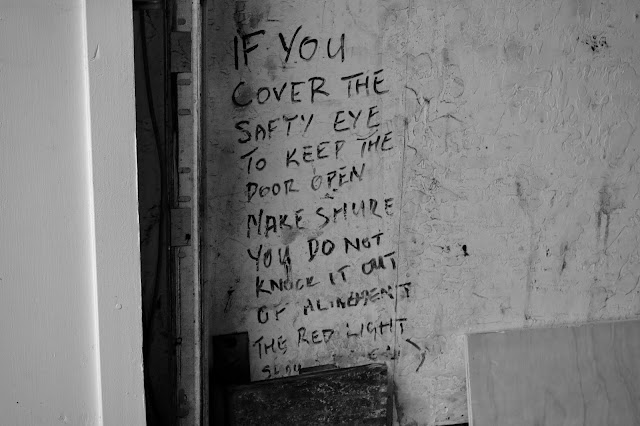 IF YOU
COVER THE
SAFTY EYE
TO KEEP THE
DOOR OPEN
MAKE SHURE
YOU DO NOT
KNOCK IT OUT
OF ALINEMENT
THE RED LIGHT